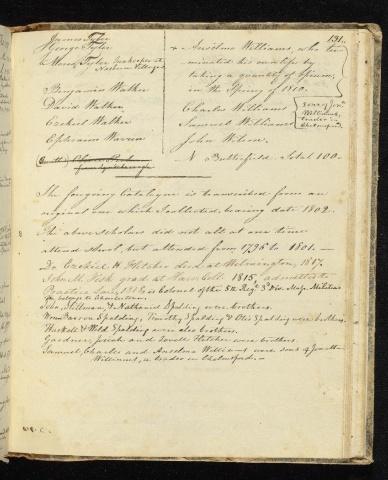 131.
James Tyler
George Tyler
Moses Tyler Innkeeper at
Nashua Village
Benjamin Walker
David Walker
Ezekiel Walker
Ephraim Warren
+ Anselmo Williams, who ter-
minated his own life by
taking a quantity of opium,
in the Spring of 1810.
Charles Williams
Samuel Williams
sons of Jona.
Williams,
trader in
Chelmsford
John Wilson.
N Butterfield. Total 100.
The forgoing Catalogue is transcribed from an
original one which I collected, bearing date 1802.
The above scholars did not all at one time
attend school, but attended from 1796 to 1801.—
Dr. Ezekiel H. Fletcher died at Wilmington, 1817.
John M. Fisk grad. at Harv. Coll. 1815, admitted to
Practice Law, is Colonel of the 5th Reg. 3d Div. Mass. Militia
belongs to Charlestown.
John, Stillman, & Nathaniel Spalding were brothers.
Spalding, Timothy Spalding & Otis Spalding were brothers.
Haskell & Wild Spalding were also brothers.
Gardner, Josiah and Lovell Fletcher were brothers.
Samuel, Charles and Anselmo Williams were sons of Jonathan
Williams, a trader in Chelmsford.—